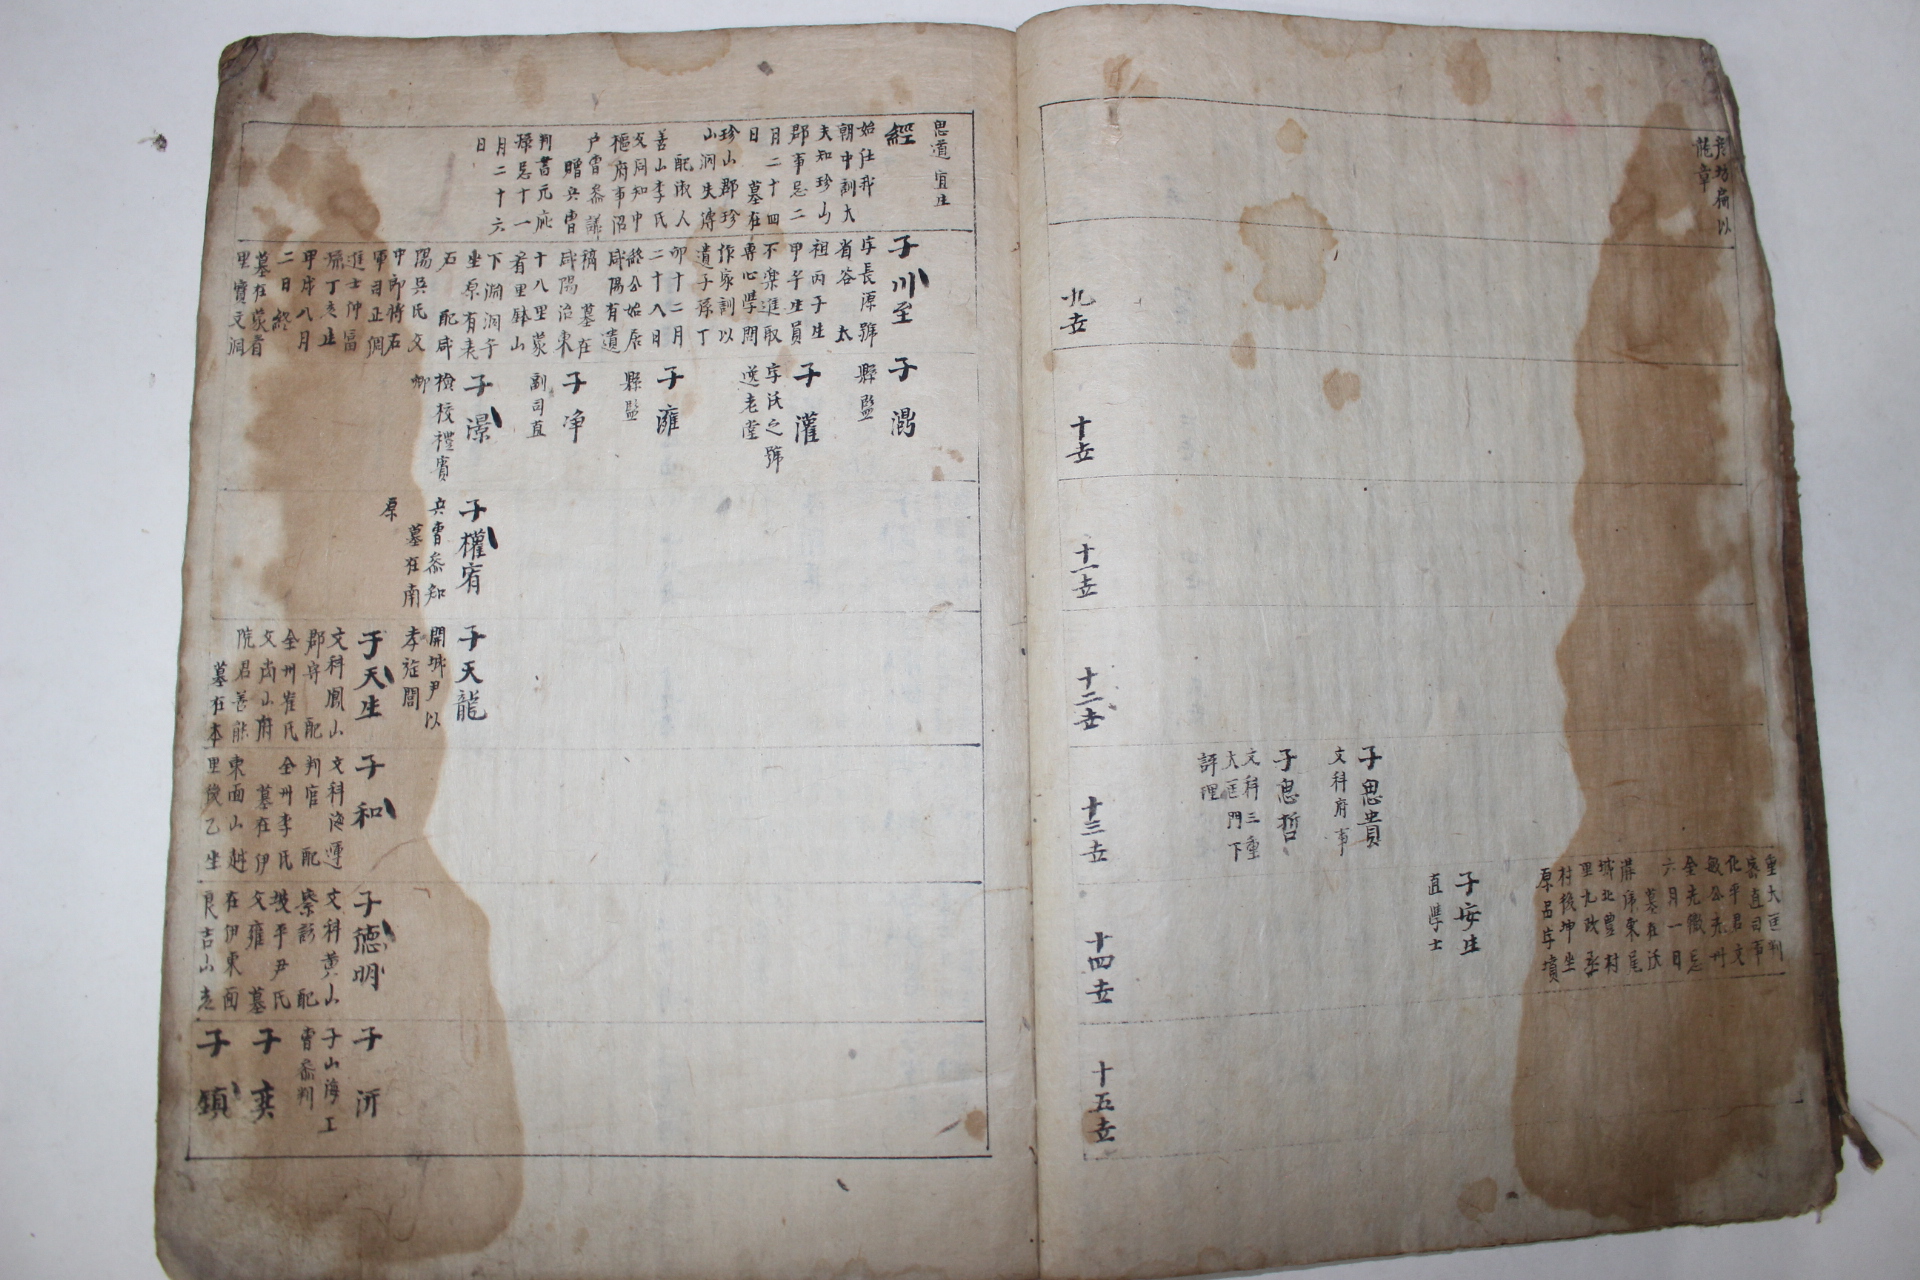 龍章
九世
十世
十一世
十二世
十三世
十四世
十五世
子思貴
文科府事
子思哲
文科三重
大匡門下
評理
重大匡判
密直司事
化平君文
敏公
六月一日
墓在
城北豊村
里九政丞
村後坤坐
原呂字墳
子安生
直學士
思道 宜生
經
始仕我
朝中訓大
夫知珍山
郡事忌二
月二十四
日 墓在
珍山郡珍
山洞失傳
配淑人
善山李氏
父同知中
樞府事
戶曹參議
贈兵曹
判書元庇
孫忌十一
月二十六
日
子川至
字長源號
省谷 太
祖丙子生
甲午生員
不樂進取
專心學問
作家訓以
遺子孫丁
卯十二月
二十八日
終公始居
咸陽有遺
稿 墓在
咸陽治東
十八里蒙
首里鉢山
下洞洞午
坐原有表
石 配咸
陽吳氏父
中郎將石
軍司正倜
進士仲富
孫丁亥生
甲戌八月
二日終
墓在蒙首
里寶文洞
子
縣監
子灌
字沃之號
逸老堂
子灉
縣監
子淨
副司直
子澋
檢校禮賓
卿
子權宥
兵曹參知
墓在南
原
子天龍
開城尹以
孝旌閭
子天生
文科鳳山
郡守 配
全州崔氏
父尚山府
院君善能
墓在本
子和
文科海運
判官 配
全州李氏
墓在伊
東面山越
里後乙坐
子德明
文科黃山
察訪 配
坡平尹氏
父雍 墓
在伊東面
良吉山
子沂
子山海工
曹參判
子奕
子鎮